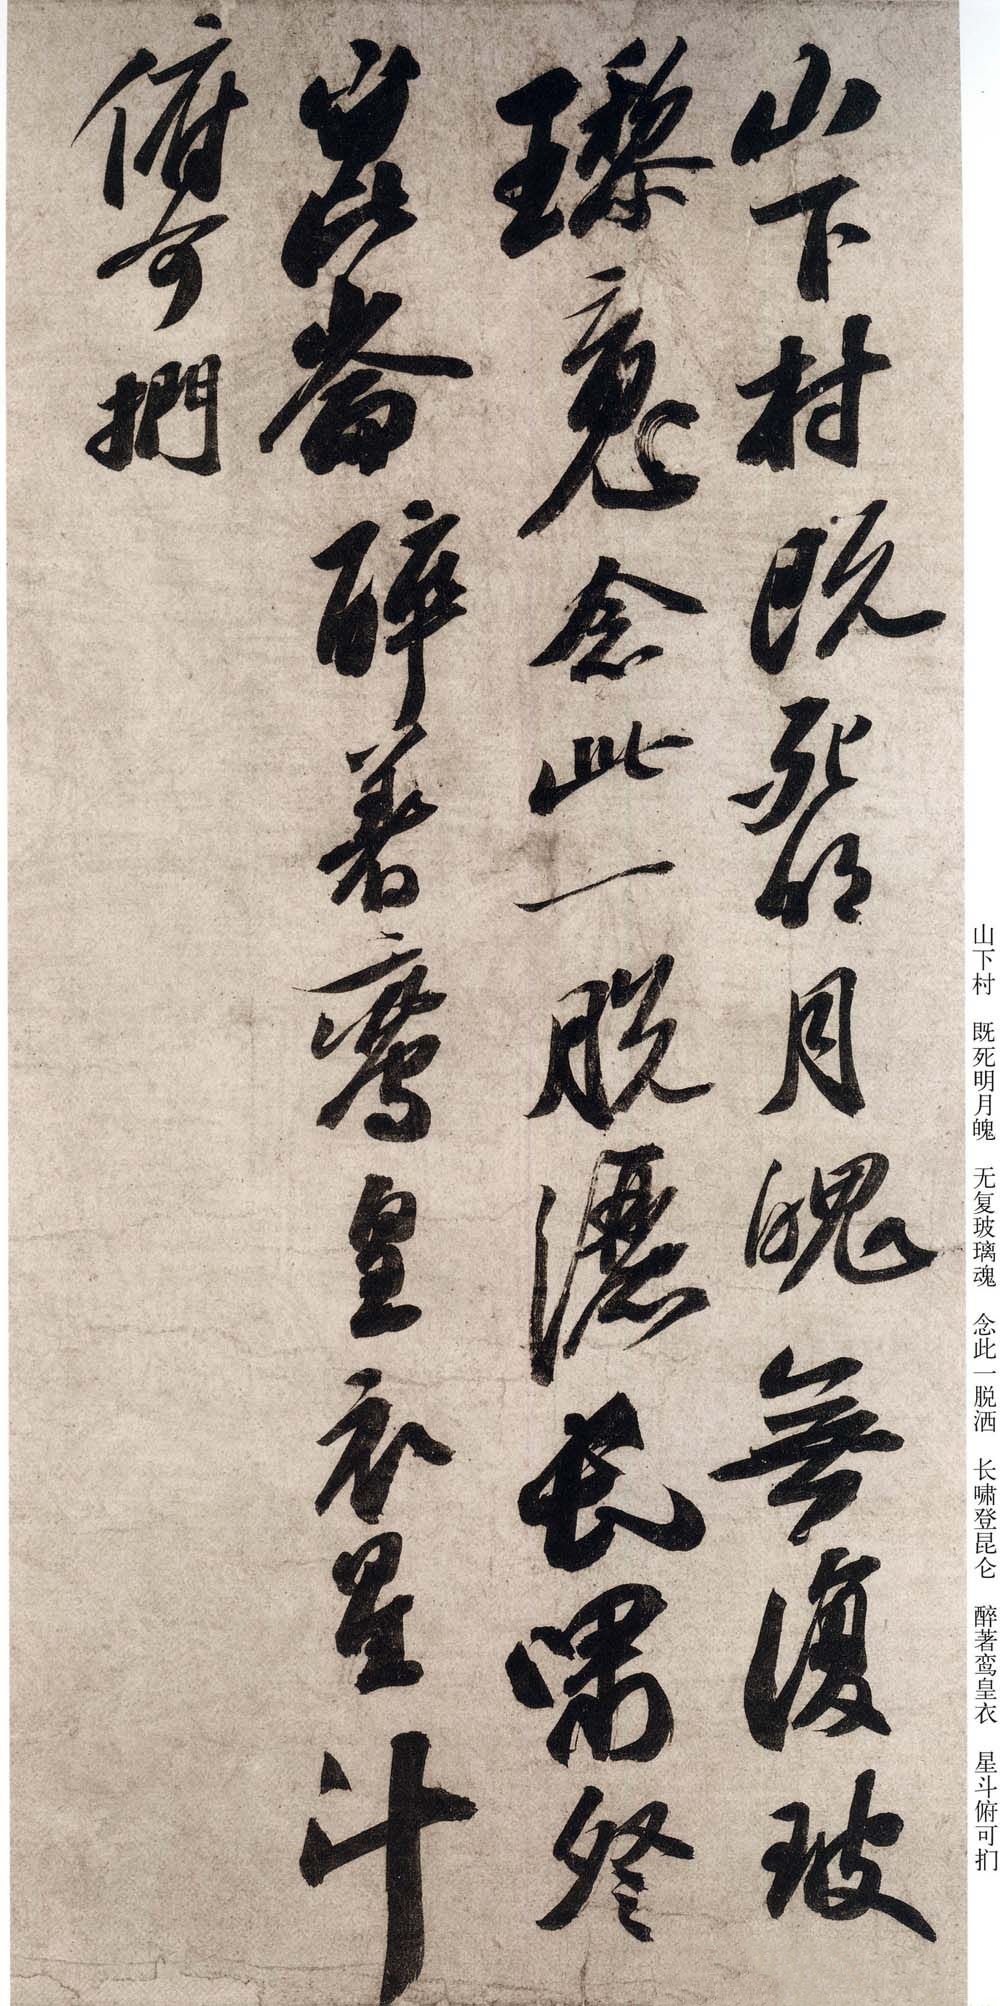 山下村既死明月魄無復玻
瓈魂念此一脱灑長嘯登
崑崙醉著鸞皇衣星斗
俯可捫
山下村 既死明月魄 无复玻璃魂 念此一脱洒 长啸登昆仑 醉著鸾皇衣 星斗俯可扪